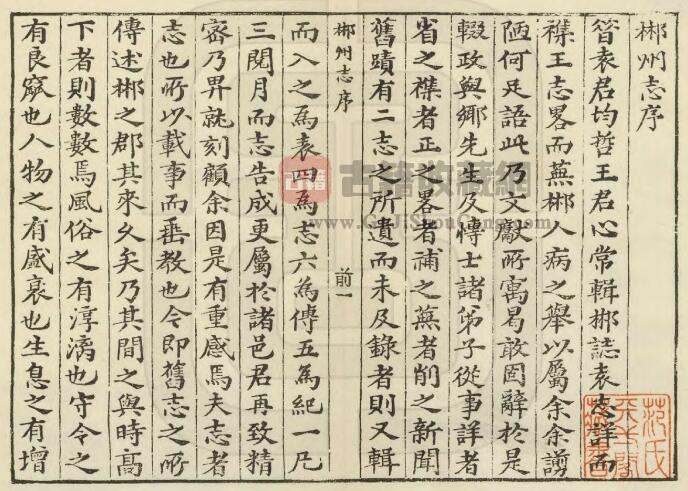 郴州志序
昝袁君均哲王君心常輯郴誌袁志詳而
襍王志畧而蕪郴人病之舉以屬余余謭
陋何足語此乃文獻所寓曷敢固辭於是
輟政與鄉先生及慱士諸弟子從事詳者
省之襍者正之畧者補之蕪者削之新聞
舊蹟有二志之所遺而未及錄者則又輯
郴州志序
前一
而入之為表四為志六為傳五為紀一凡
三閱月而志告成更屬於諸邑君再致精
宻乃畀就刻顧余因是有重感焉夫志者
志也所以載事而垂教也今即舊志之所
傳述郴之郡其來乆矣乃其間之與時高
下者則數數焉風俗之有淳漓也守令之
有良窳也人物之有盛衰也生息之有增
范氏
天一閣
藏書
古籍
古籍收藏網
www.GuJiShouCang.com